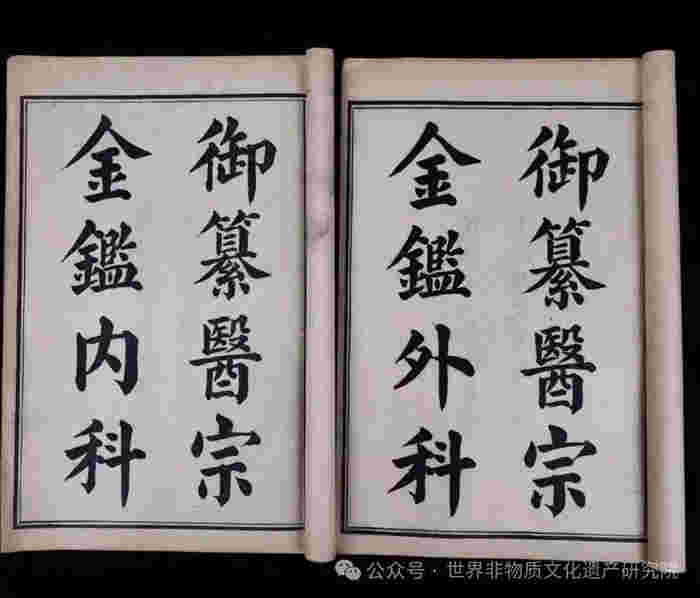 御纂醫宗
金鑑内科
御纂醫宗
金鑑外科
公众号 · 世界非物质文化遗产研究院